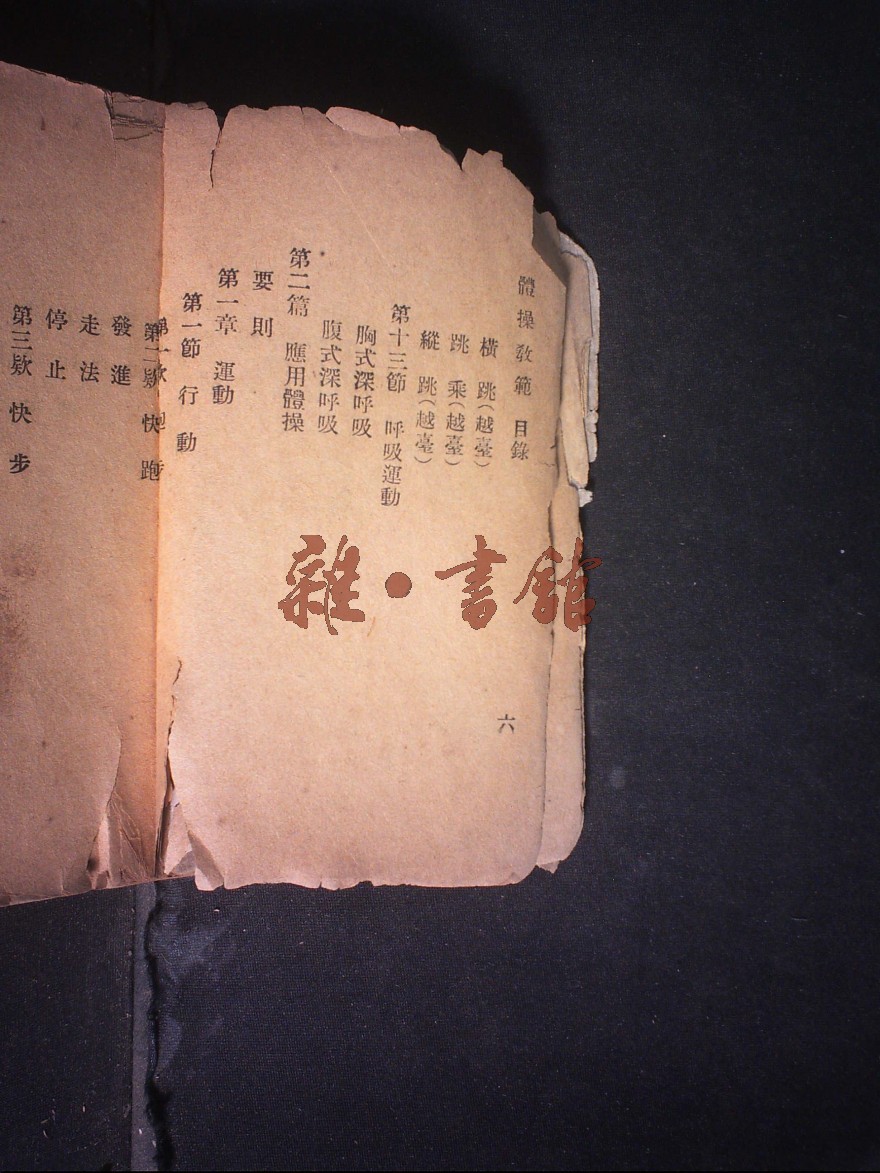 體操教範 目錄
橫 跳(越臺)
跳 乘(越臺)
縱 跳(越臺)
第十三節 呼吸運動
胸式深呼吸
腹式深呼吸
第二篇 應用體操
要則
第一章 運動
第一節 行動
第二欵 快跑
發進
走法
停止
第三欵 快步
六
雜·書館